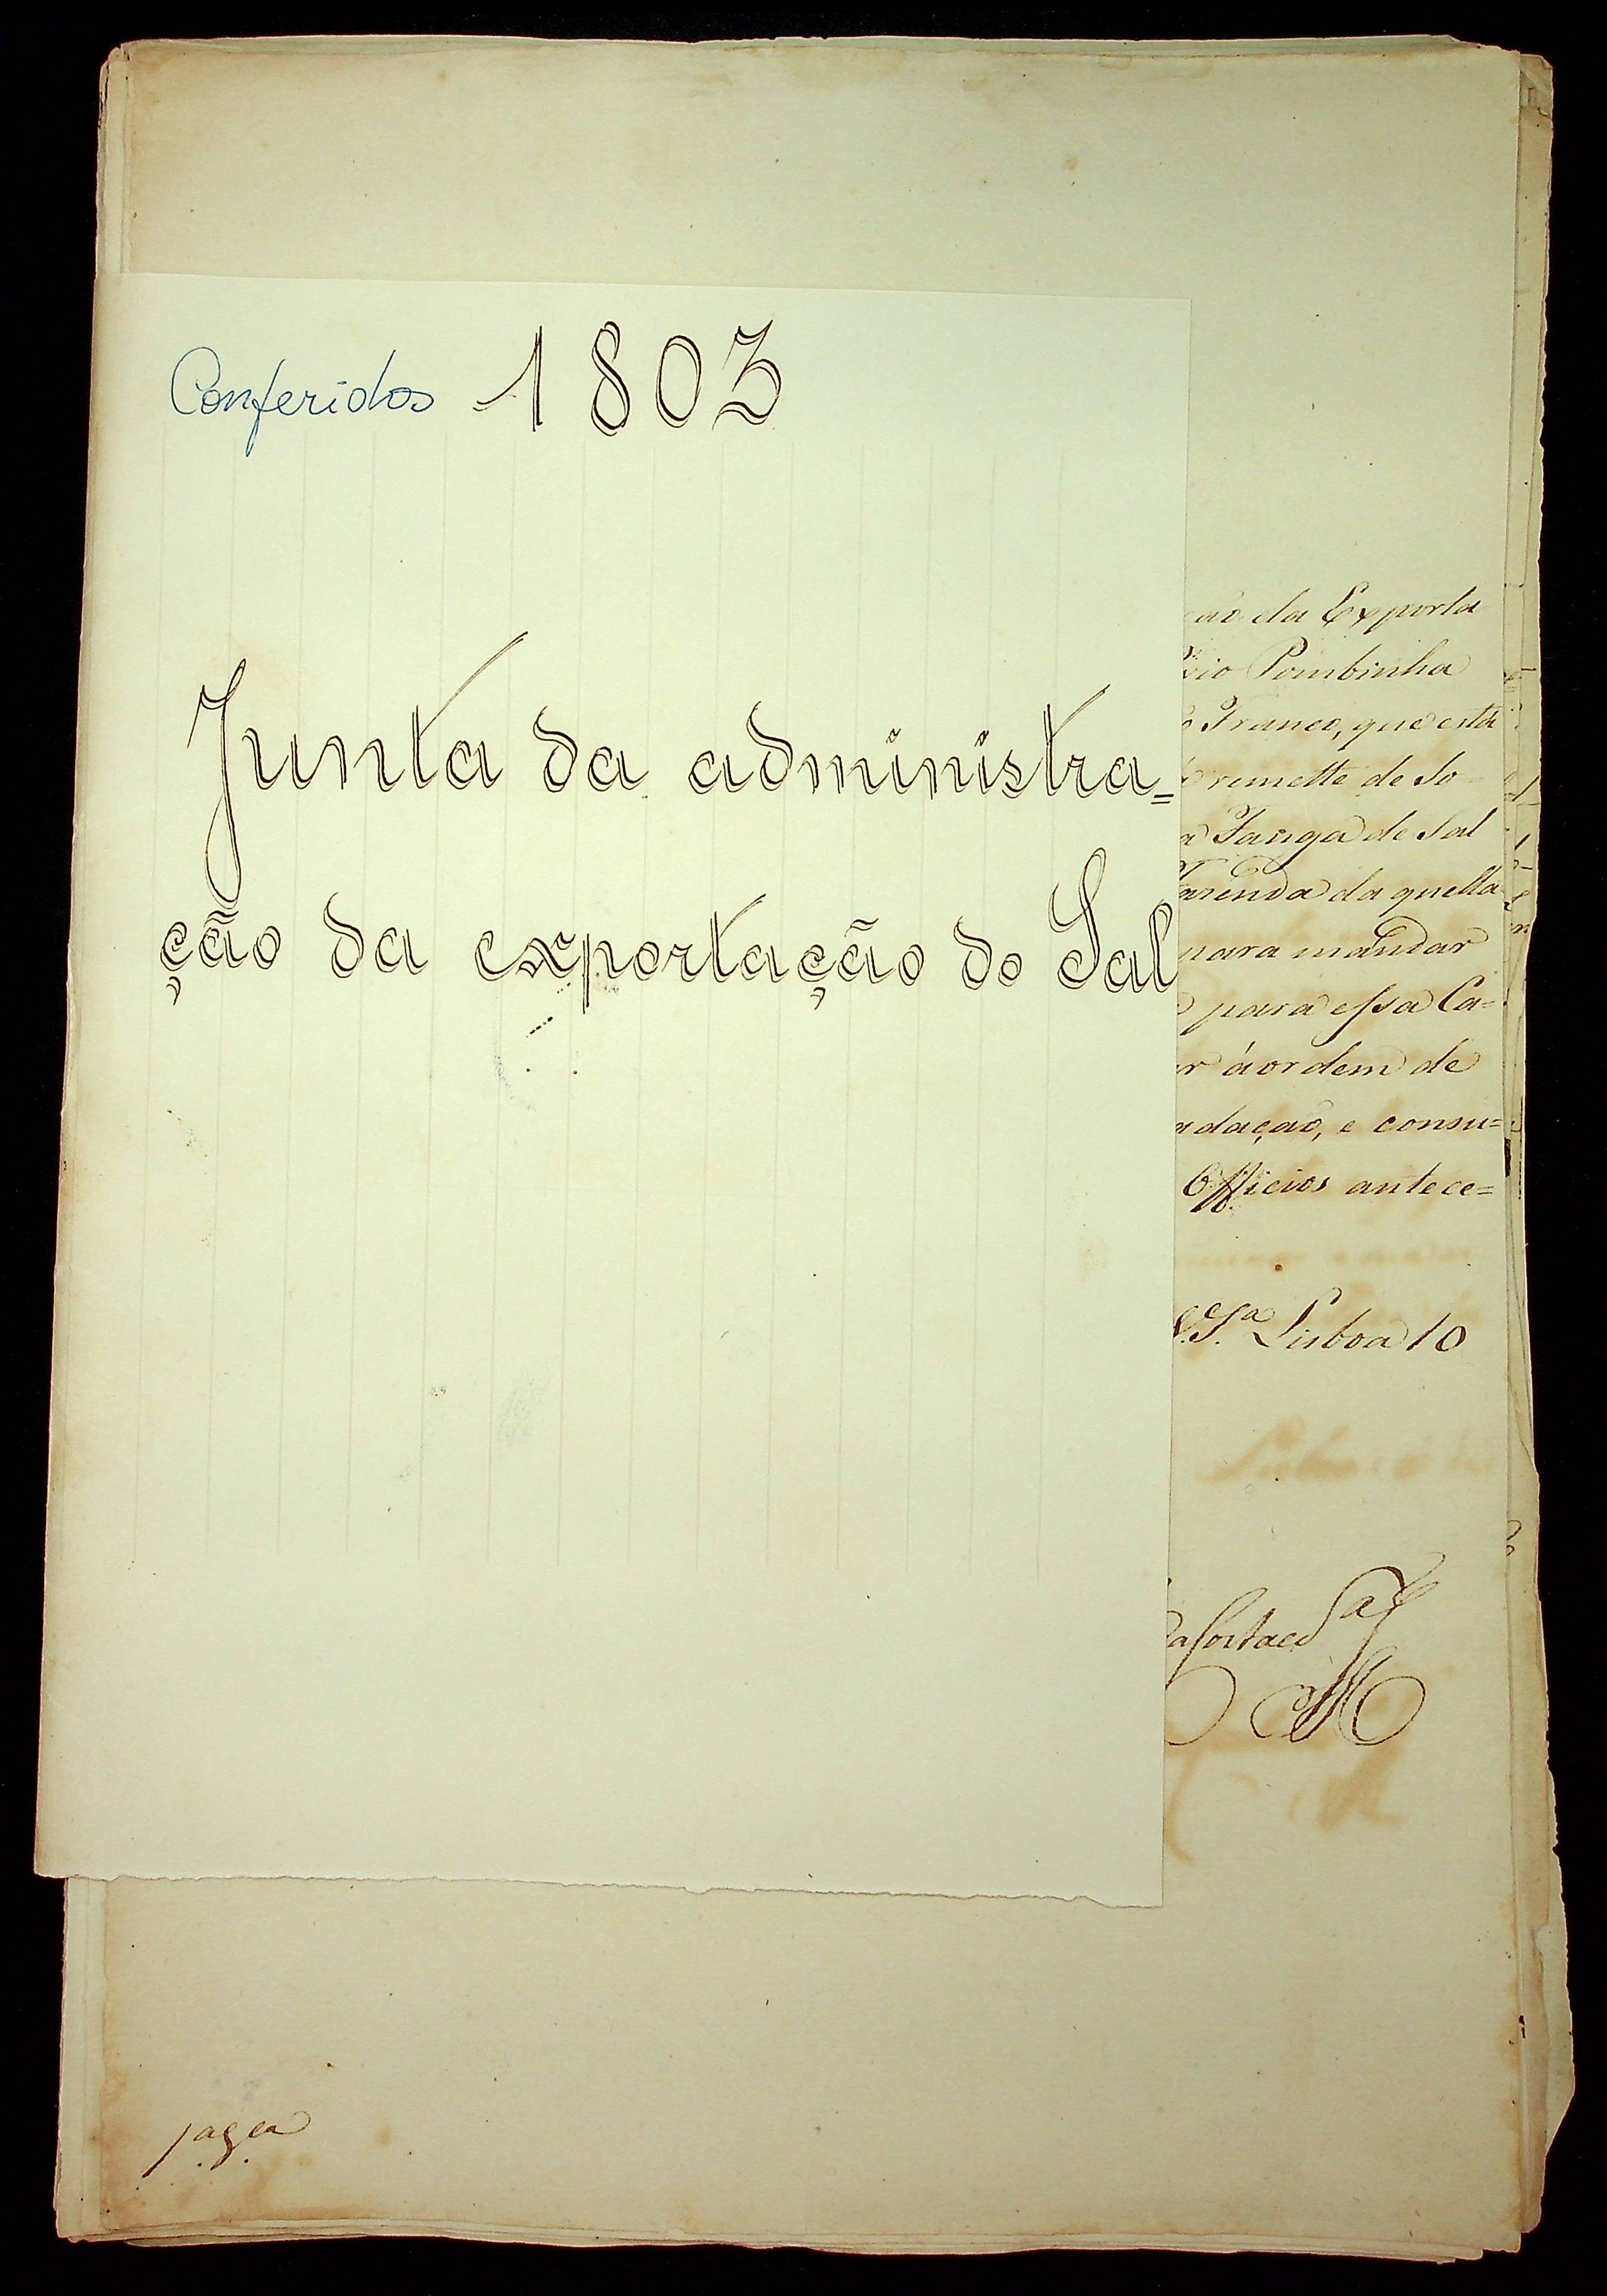 Conferidos 1803
Junta da administra=
ção da exportação do Sal
ao da Exporta
rio Pombinha
Franco, que está
remette de So
a Fanga de Sal
azenda da quella
para mandar
para essa Ca=
r á ordem de
adação, e consu=
Officios antece=
V.S.ª Lisboa 10
da Costa e Sá